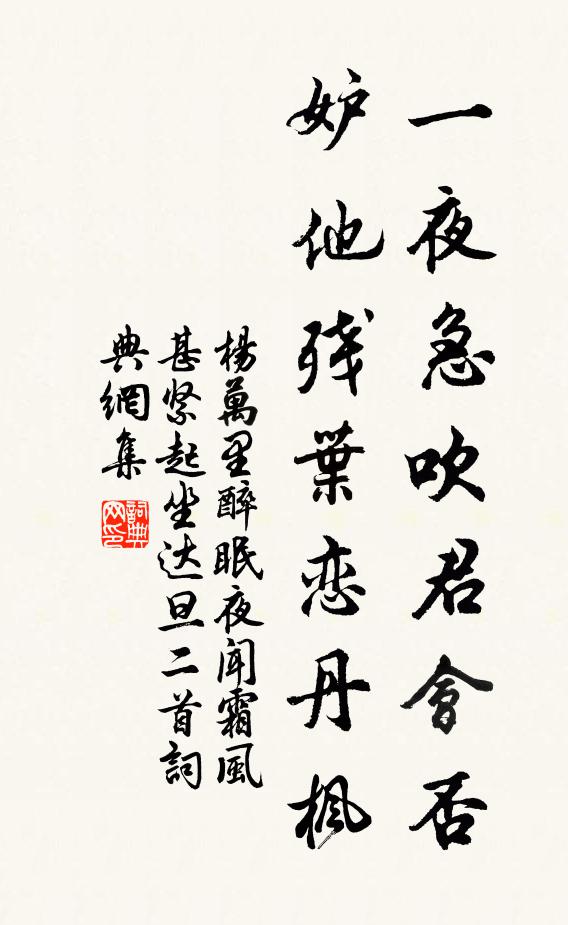 一夜急吹君會否
妒他残葉恋丹楓
楊萬里醉眠夜闻霜風
甚紧起坐达旦二首詞
典網集
詞典网印